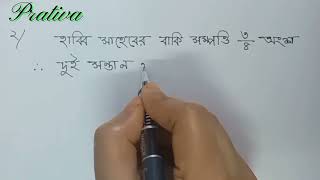 Prativa
২/ হাবিব সাহেবের বাকি সম্পত্তি ৩/৪ অংশ
∴ দুই সন্তান